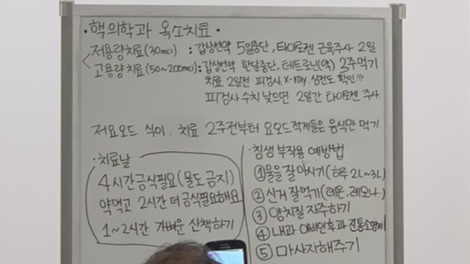 • 핵의학과 옥소치료 •
저용량치료(30mci) : 갑상선약 5일중단, 타이로젠 근육주사 2일
고용량치료(50~200mci): 갑상선약 한달중단, 테트로닌(약) 2주먹기
치료 2일전 피검사, X-ray, 심전도 확인!!!
피검사 수치 낮으면 2일간 타이로젠 주사.
저요오드 식이 : 치료 2주전부터 요오드적게든 음식만 먹기
• 치료날
4시간금식필요(물도 금지)
약먹고 2시간 더 금식해요
1~2시간 가벼운 산책하기
• 침샘 부작용 예방법
① 물을 잘 마시기 (하루 2L~3L)
② 신거 잘먹기 (레몬, 레모나..)
③ 양치질 자주하기
④ 내과 이비인후과
⑤ 마사지해주기